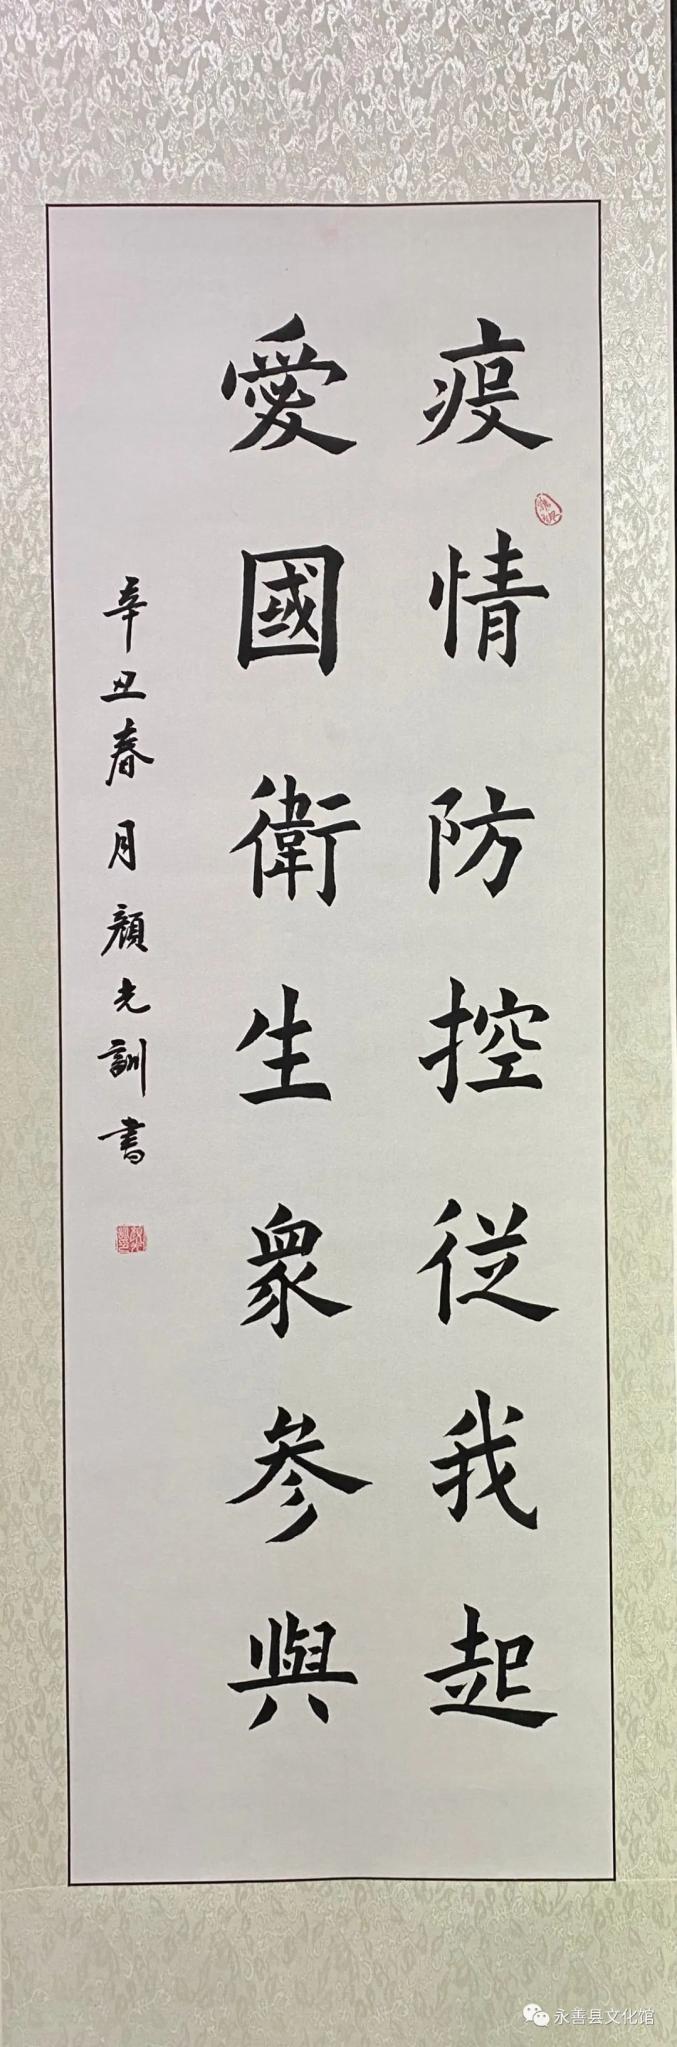 疫情防控從我起
愛國衛生衆參與
辛丑春月顔光訓書
永善县文化馆